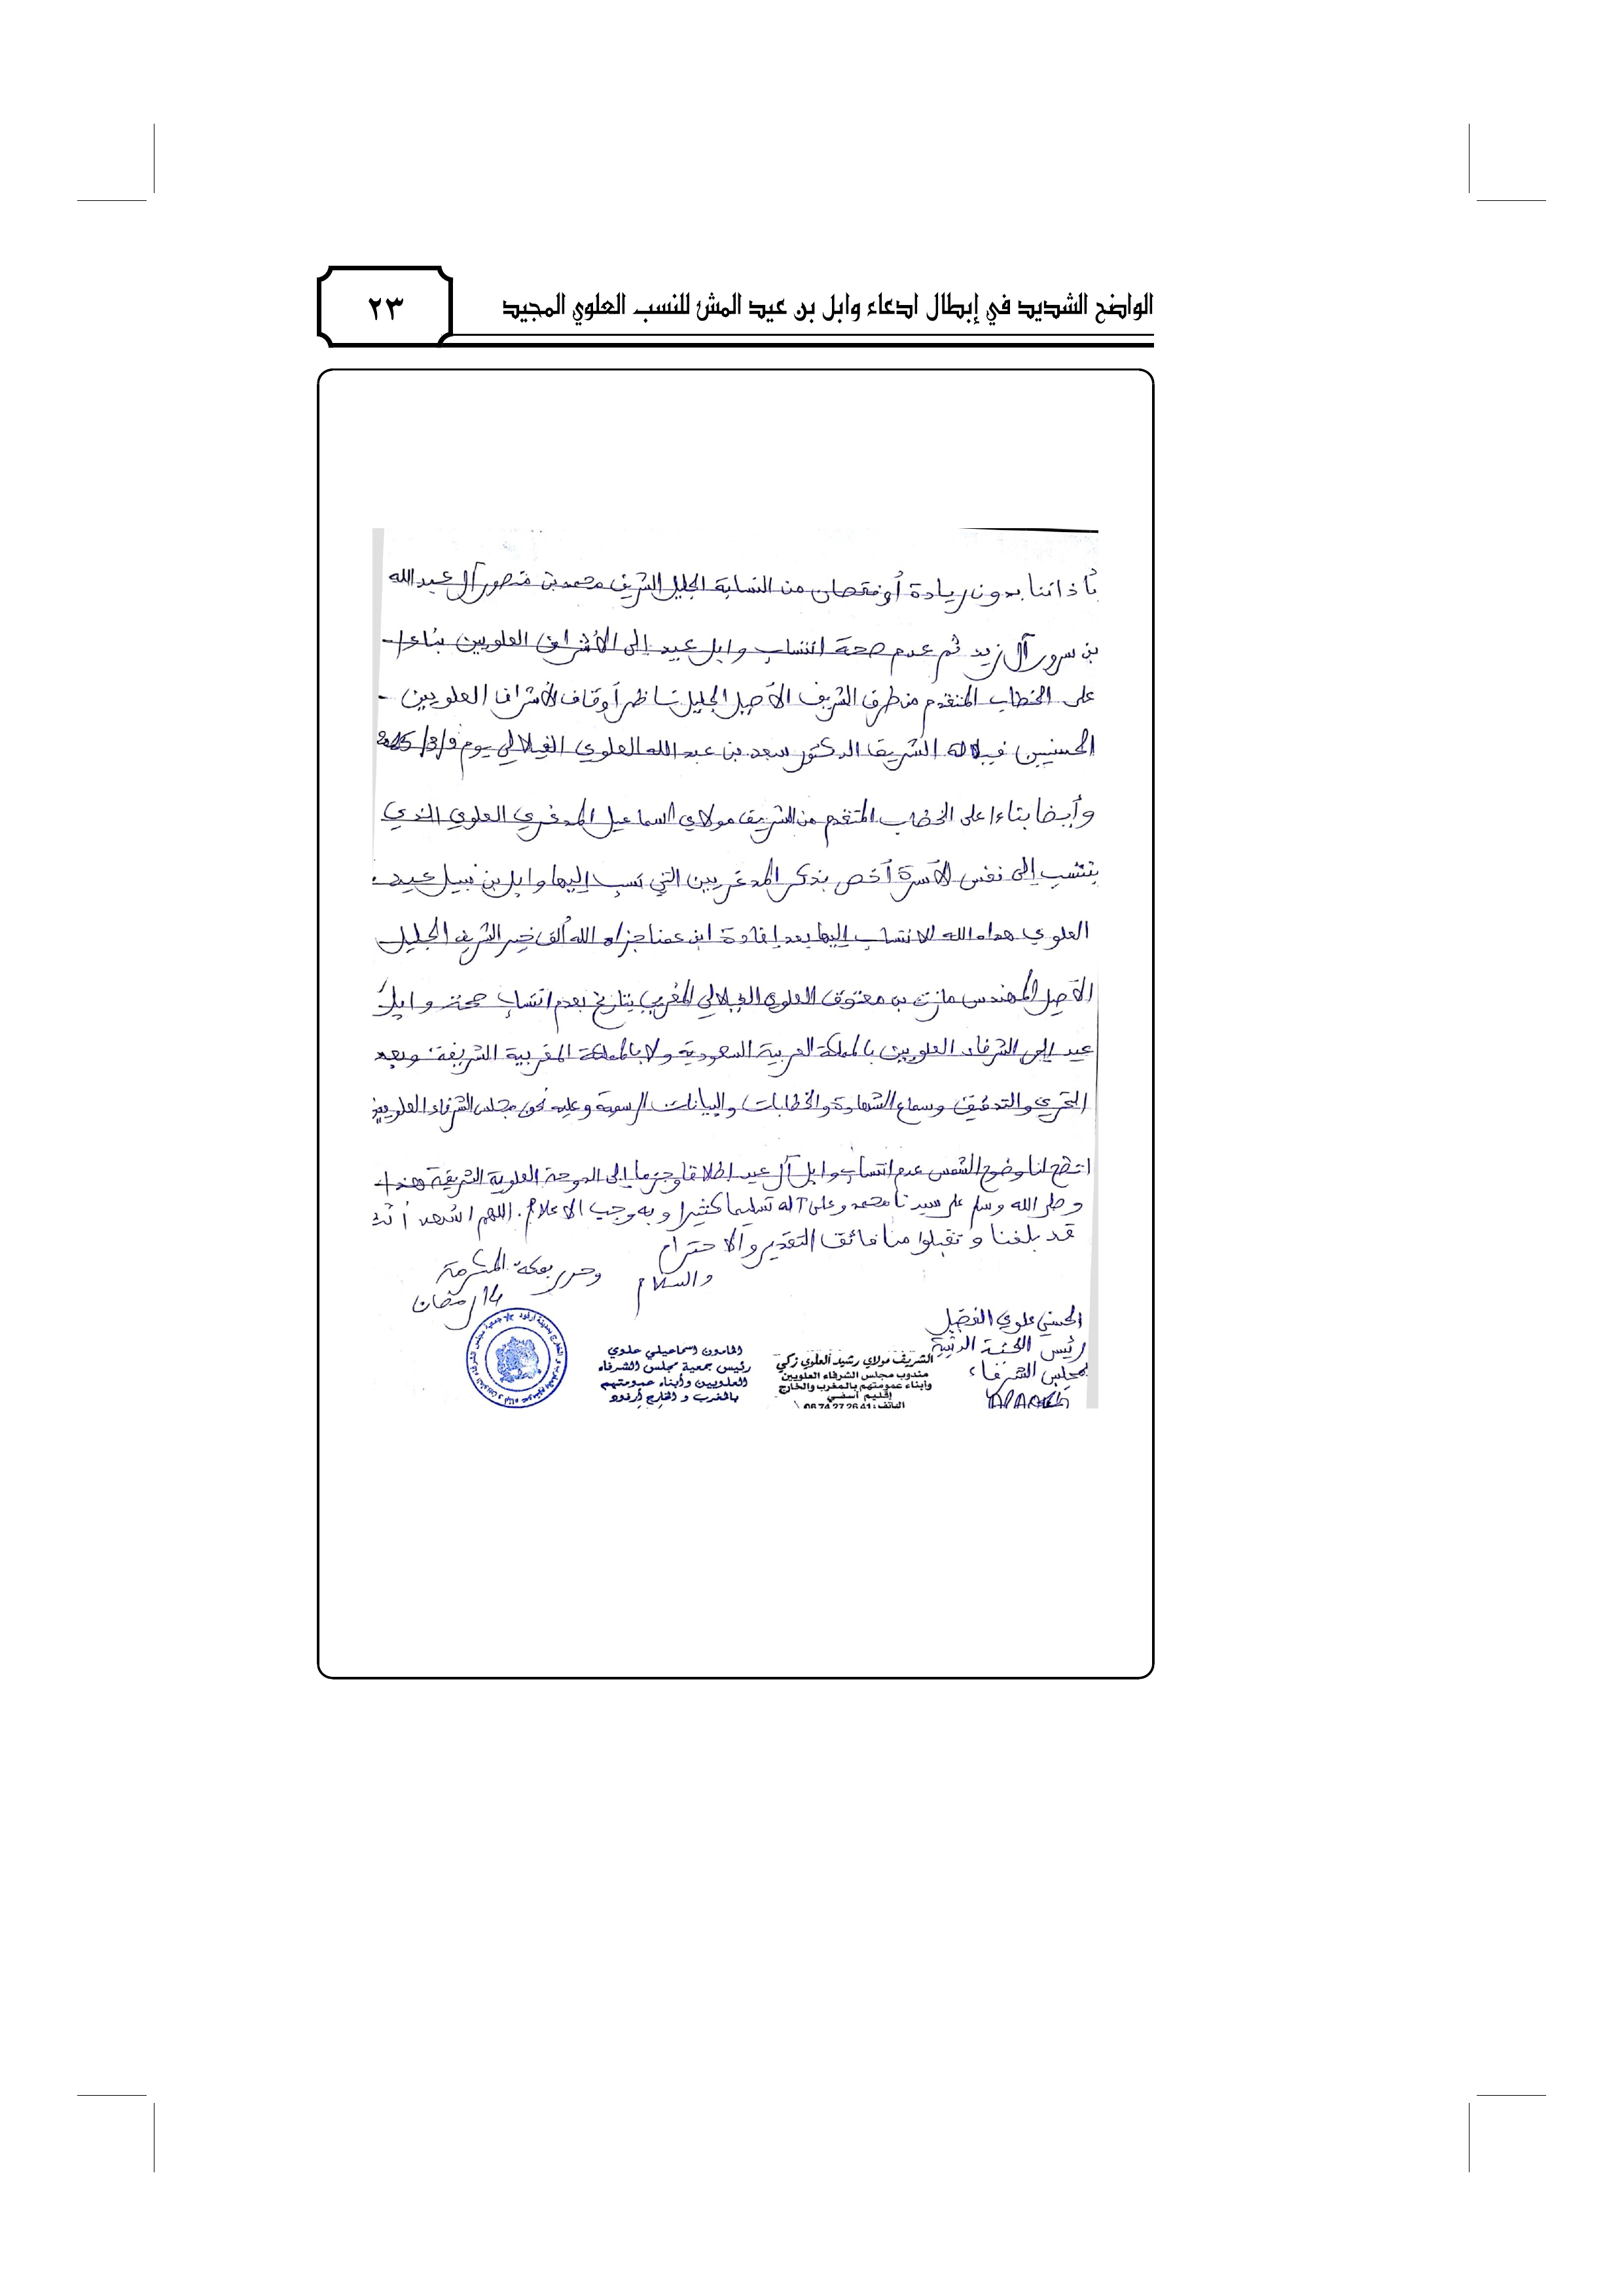 الواضح الشديد في إبطال ادعاء وابل بن عيد المش للنسب العلوي المجيد
٢٣
بأذاننا بدون زيادة أو نقصان من النسابة الجليل الشريف محمد بن منصور آل عبد الله
بن سرور آل زيد ثم عدم صحة انتساب وابل عيد إلى الأشراف العلويين بناءا
على الخطاب المتقدم من طرف الشريف الأصيل الجليل ناظر أوقاف الأشراف العلويين
الحسنيين الشريف الدكتور سعد بن عبد الله العلوي الفيلالي يوم 9/3/2025
وأيضا بناءا على الخطاب المتقدم من الشريف مولاي اسماعيل المدغري العلوي الذي
ينتسب إلى نفس الأسرة أخص بذكر المدغريين التي نسب إليها وابل بن نبيل عيد
العلوي هداه الله للانتساب إليها بعد إفادة ابن عمنا جزاه الله ألف خير الشريف الجليل
الأصيل المهندس مازن بن معتوق العلوي الجيلالي المغربي بتاريخ بعدم انتساب صحة وابل
عيد إلى الشرفاء العلويين بالمملكة العربية السعودية ولا بالمملكة المغربية الشريفة وبعد
التحري والتدقيق وسماع الشهادة والخطابات والبيانات الرسمية وعليه نحن مجلس الشرفاء العلويين
اتضح لنا وضوح الشمس عدم انتساب وابل آل عيد إطلاقا وجزما إلى الدوحة العلوية الشريفة هذا
وصلى الله وسلم على سيدنا محمد وعلى آله تسليما كثيرا وبه وجب الاعلام. اللهم اشهد أننا
قد بلغنا وتقبلوا منا فائق التقدير والاحترام
والسلام وحرر بمكة المكرمة
14 رمضان
الحسني علوي الفضيل
رئيس اللجنة
لمجلس الشرفاء
الشريف مولاي رشيد العلوي زكي
مندوب مجلس الشرفاء العلويين
وأبناء عمومتهم بالمغرب والخارج
إقليم أسفي
الهاتف: 06 74 27 26 41
المامون اسماعيلي علوي
رئيس جمعية مجلس الشرفاء
العلويين وأبناء عمومتهم
بالمغرب و الخارج أرفود